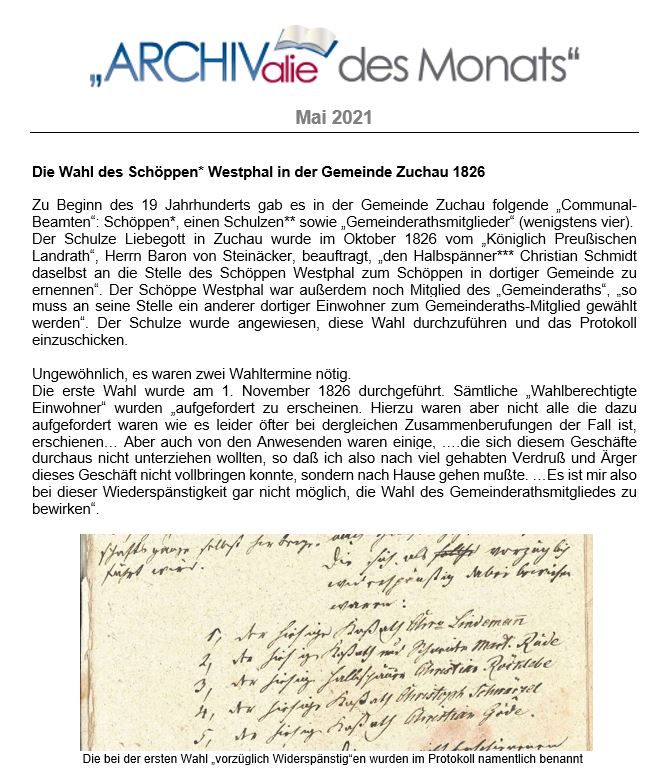 „ARCHIValie des Monats“
Mai 2021
Die Wahl des Schöppen* Westphal in der Gemeinde Zuchau 1826
Zu Beginn des 19 Jahrhunderts gab es in der Gemeinde Zuchau folgende „Communal-
Beamten“: Schöppen*, einen Schulzen** sowie „Gemeinderathsmitglieder“ (wenigstens vier).
Der Schulze Liebegott in Zuchau wurde im Oktober 1826 vom „Königlich Preußischen
Landrath“, Herrn Baron von Steinäcker, beauftragt, „den Halbspänner*** Christian Schmidt
daselbst an die Stelle des Schöppen Westphal zum Schöppen in dortiger Gemeinde zu
ernennen“. Der Schöppe Westphal war außerdem noch Mitglied des „Gemeinderaths“, „so
muss an seine Stelle ein anderer dortiger Einwohner zum Gemeinderaths-Mitglied gewählt
werden“. Der Schulze wurde angewiesen, diese Wahl durchzuführen und das Protokoll
einzuschicken.
Ungewöhnlich, es waren zwei Wahltermine nötig.
Die erste Wahl wurde am 1. November 1826 durchgeführt. Sämtliche „Wahlberechtigte
Einwohner“ wurden „aufgefordert zu erscheinen. Hierzu waren aber nicht alle die dazu
aufgefordert waren wie es leider öfter bei dergleichen Zusammenberufungen der Fall ist,
erschienen… Aber auch von den Anwesenden waren einige, ….die sich diesem Geschäfte
durchaus nicht unterziehen wollten, so daß ich also nach viel gehabten Verdruß und Ärger
dieses Geschäft nicht vollbringen konnte, sondern nach Hause gehen mußte. …Es ist mir also
bei dieser Wiederspänstigkeit gar nicht möglich, die Wahl des Gemeinderathsmitgliedes zu
bewirken“.
führt wird.
die sich als solche vorzüglich
widerspänstig dabei bewiesen
waren:
1, der hiesige Koßath Lindemann
2, der hiesige Koßath und Schneider Mart. Räde
3, der hiesige Halbspänner Christian
4, der hiesige Koßath Christoph
5, der hiesige Koßath Christian Göde.
Die bei der ersten Wahl „vorzüglich Widerspänstig“en wurden im Protokoll namentlich benannt